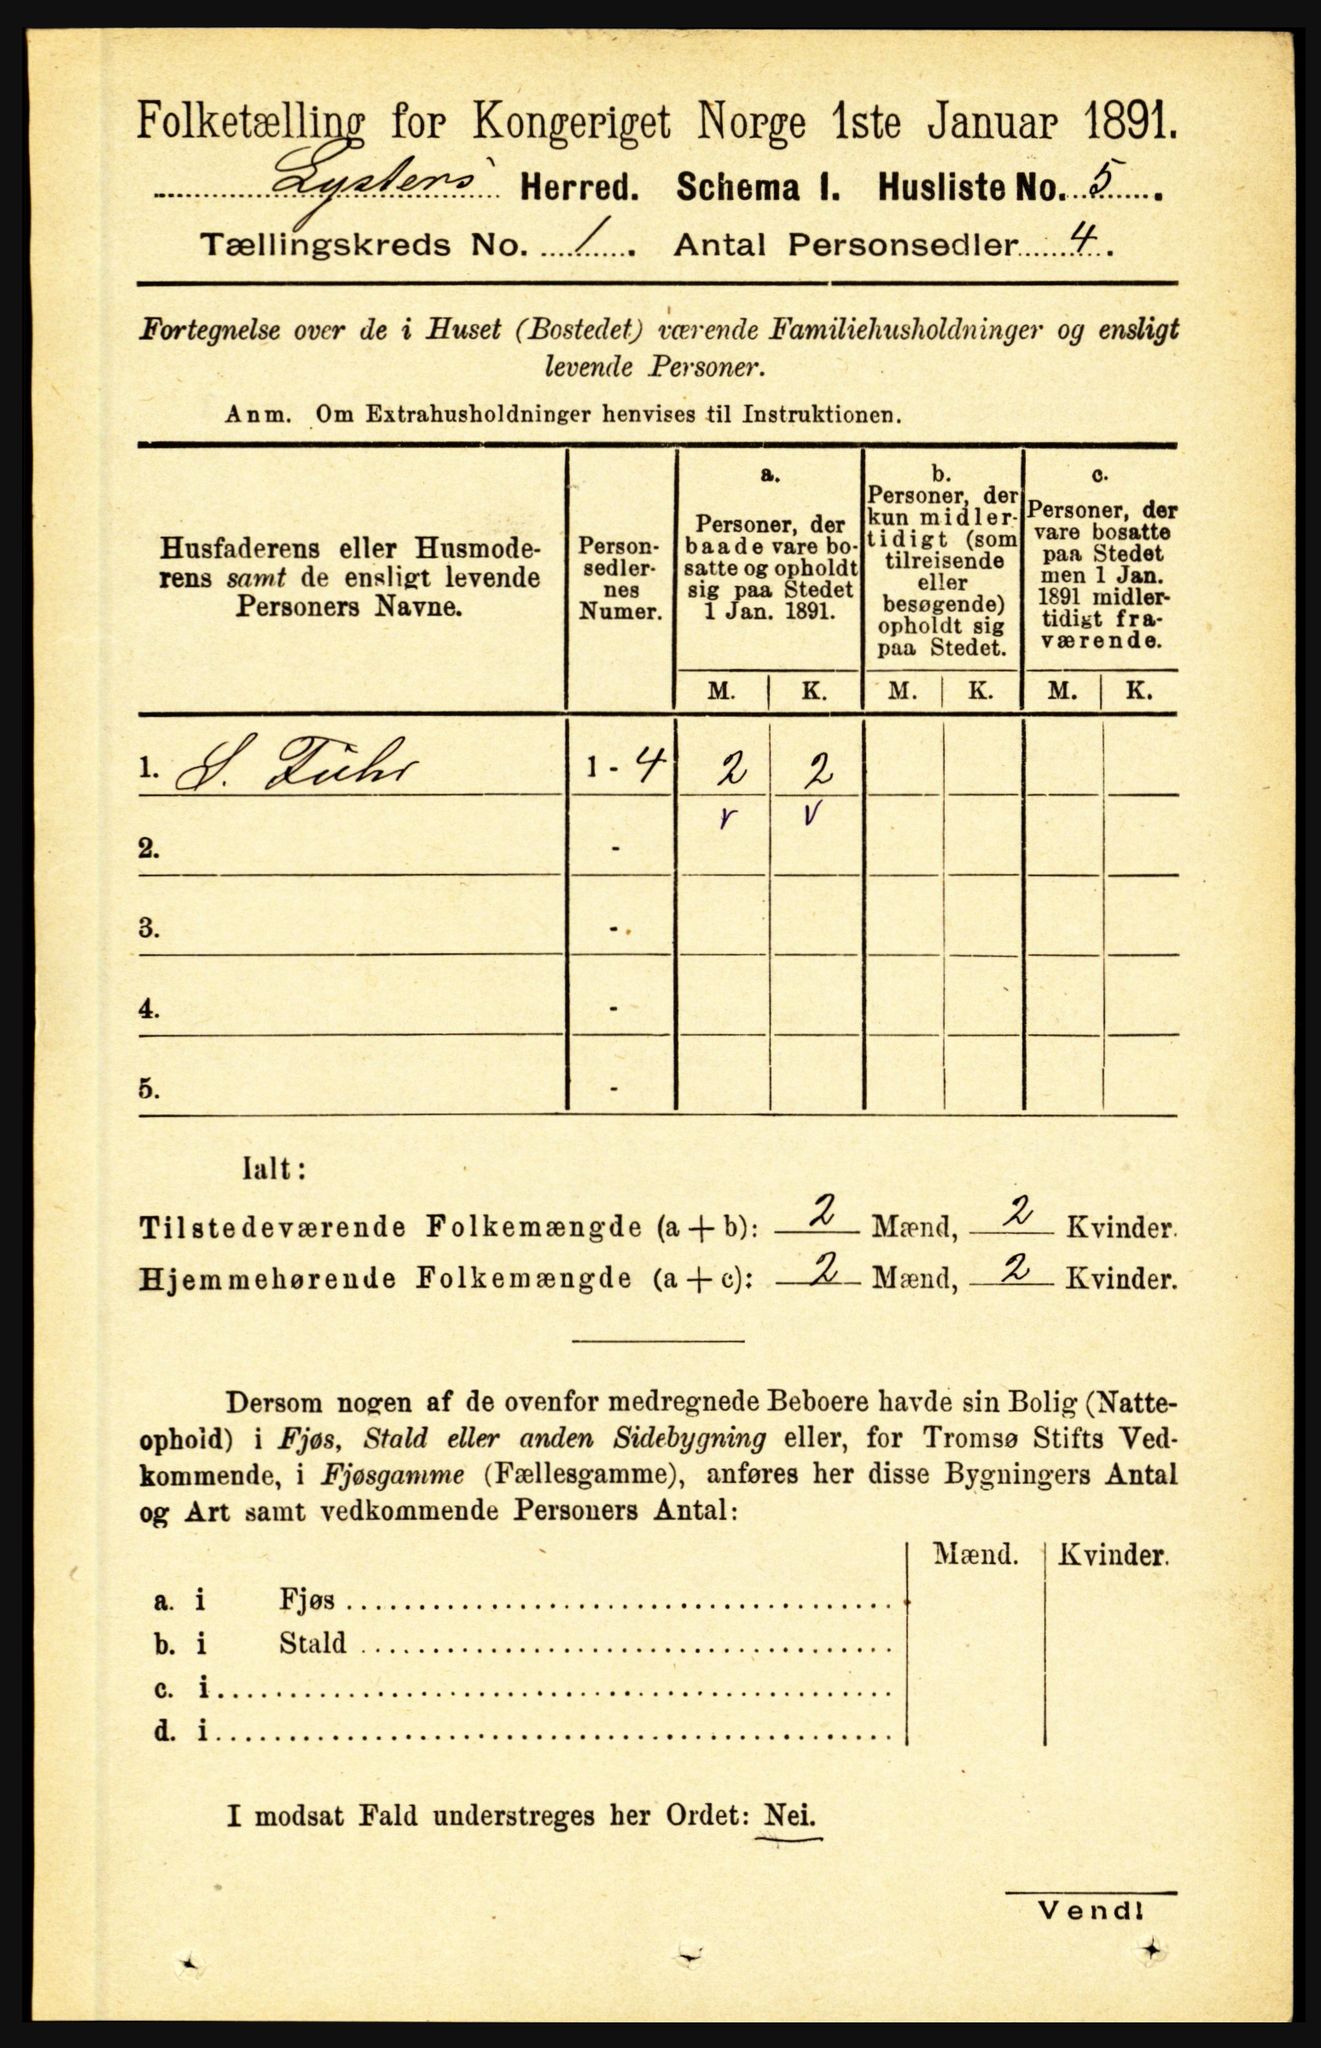 Folketælling for Kongeriget Norge 1ste Januar 1891.
Lysters Herred. Schema I. Husliste No. 5.
Tællingskreds No. 1. Antal Personsedler 4.
Fortegnelse over de i Huset (Bostedet) værende Familiehusholdninger og ensligt
levende Personer.
Anm. Om Extrahusholdninger henvises til Instruktionen.
Husfaderens eller Husmode-
rens samt de ensligt levende
Personers Navne.
Person-
sedler-
nes
Numer.
a.
Personer, der
baade vare bo-
satte og opholdt
sig paa Stedet
1 Jan. 1891.
b.
Personer, der
kun midler-
tidigt (som
tilreisende
eller
besøgende)
opholdt sig
paa Stedet.
c.
Personer, der
vare bosatte
paa Stedet
men 1 Jan.
1891 midler-
tidigt fra-
værende.
M. K. M. K. M. K.
1. S. Führ 1 - 4 2 2
v v
2. -
3. -
4. -
5. -
Ialt:
Tilstedeværende Folkemængde (a + b): 2 Mænd, 2 Kvinder.
Hjemmehørende Folkemængde (a + c): 2 Mænd, 2 Kvinder.
Dersom nogen af de ovenfor medregnede Beboere havde sin Bolig (Natte-
ophold) i Fjøs, Stald eller anden Sidebygning eller, for Tromsø Stifts Ved-
kommende, i Fjøsgamme (Fællesgamme), anføres her disse Bygningers Antal
og Art samt vedkommende Personers Antal:
Mænd. Kvinder.
a. i Fjøs
b. i Stald
c. i
d. i
I modsat Fald understreges her Ordet: Nei.
Vend!